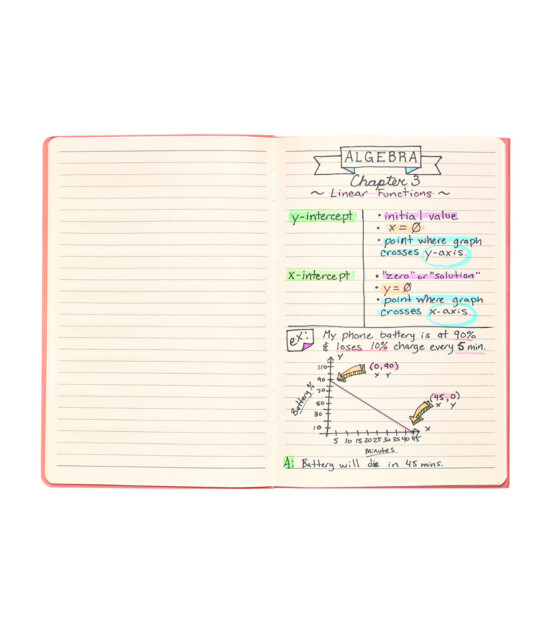 ALGEBRA
Chapter 3
~ Linear Functions ~
y-intercept
• initial value
• x = Ø
• point where graph
crosses y-axis.
x-intercept
• "zero" or "solution"
• y = Ø
• point where graph
crosses x-axis.
ex: My phone battery is at 90%
& loses 10% charge every 5 min.
y
110
90
70
50
30
10
Battery %
(0,90)
x y
(45,0)
x y
x
5 10 15 20 25 30 35 40 45
minutes
A: Battery will die in 45 mins.